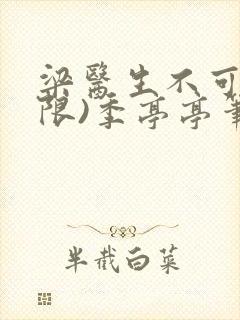 梁醫生不可
限)季亭亭筆
半截白菜